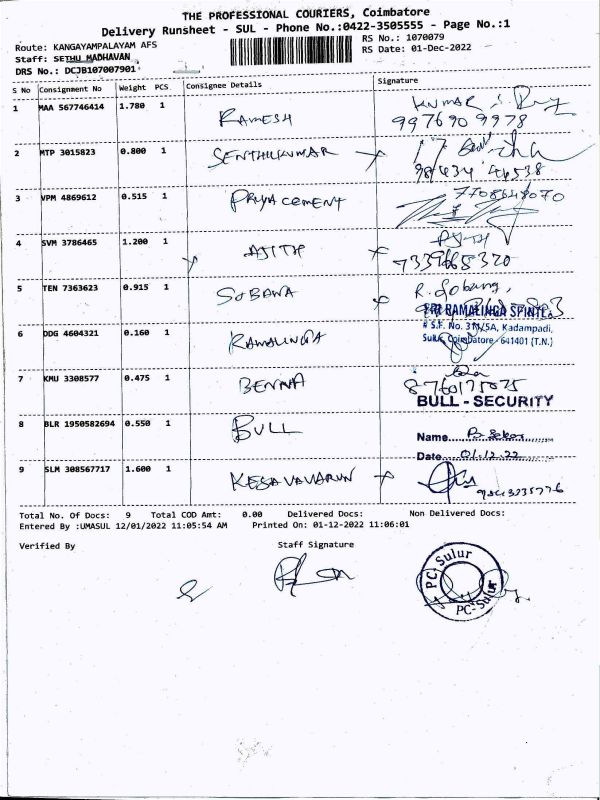 THE PROFESSIONAL COURIERS, Coimbatore
Delivery Runsheet - SUL - Phone No.:0422-3505555 - Page No.:1
Route: KANGAYAMPALAYAM AFS
RS No.: 1070079
Staff: SETHU MADHAVAN
RS Date: 01-Dec-2022
DRS No.: DCJB107007901
S No Consignment No Weight PCS Consignee Details Signature
1 MAA 567746414 1.780 1 RAMESH KUMAR
9976909978
2 MTP 3015823 0.800 1 SENTHILKUMAR
98434 44538
3 VPM 4869612 0.515 1 PRIYA CEMENT 7708648070
4 SVM 3786465 1.200 1 AJITH
7339665320
5 TEN 7363623 0.915 1 SOBANA R. Sobana,
SRI RAMALINGA SPINTEX
6 DDG 4604321 0.160 1 RAMALINGA # S.F. No. 311/5A, Kadampadi,
Sulur, Coimbatore - 641401 (T.N.)
7 KMU 3308577 0.475 1 BENNA 8760175075
BULL - SECURITY
8 BLR 1950582694 0.550 1 BULL
Name
Date 01.12.22
9 SLM 308567717 1.600 1 KESAVAVARUN
Total No. Of Docs: 9 Total COD Amt: 0.00 Delivered Docs: Non Delivered Docs:
Entered By :UMASUL 12/01/2022 11:05:54 AM Printed On: 01-12-2022 11:06:01
Verified By Staff Signature
PC-Sulur
PC-Sulur